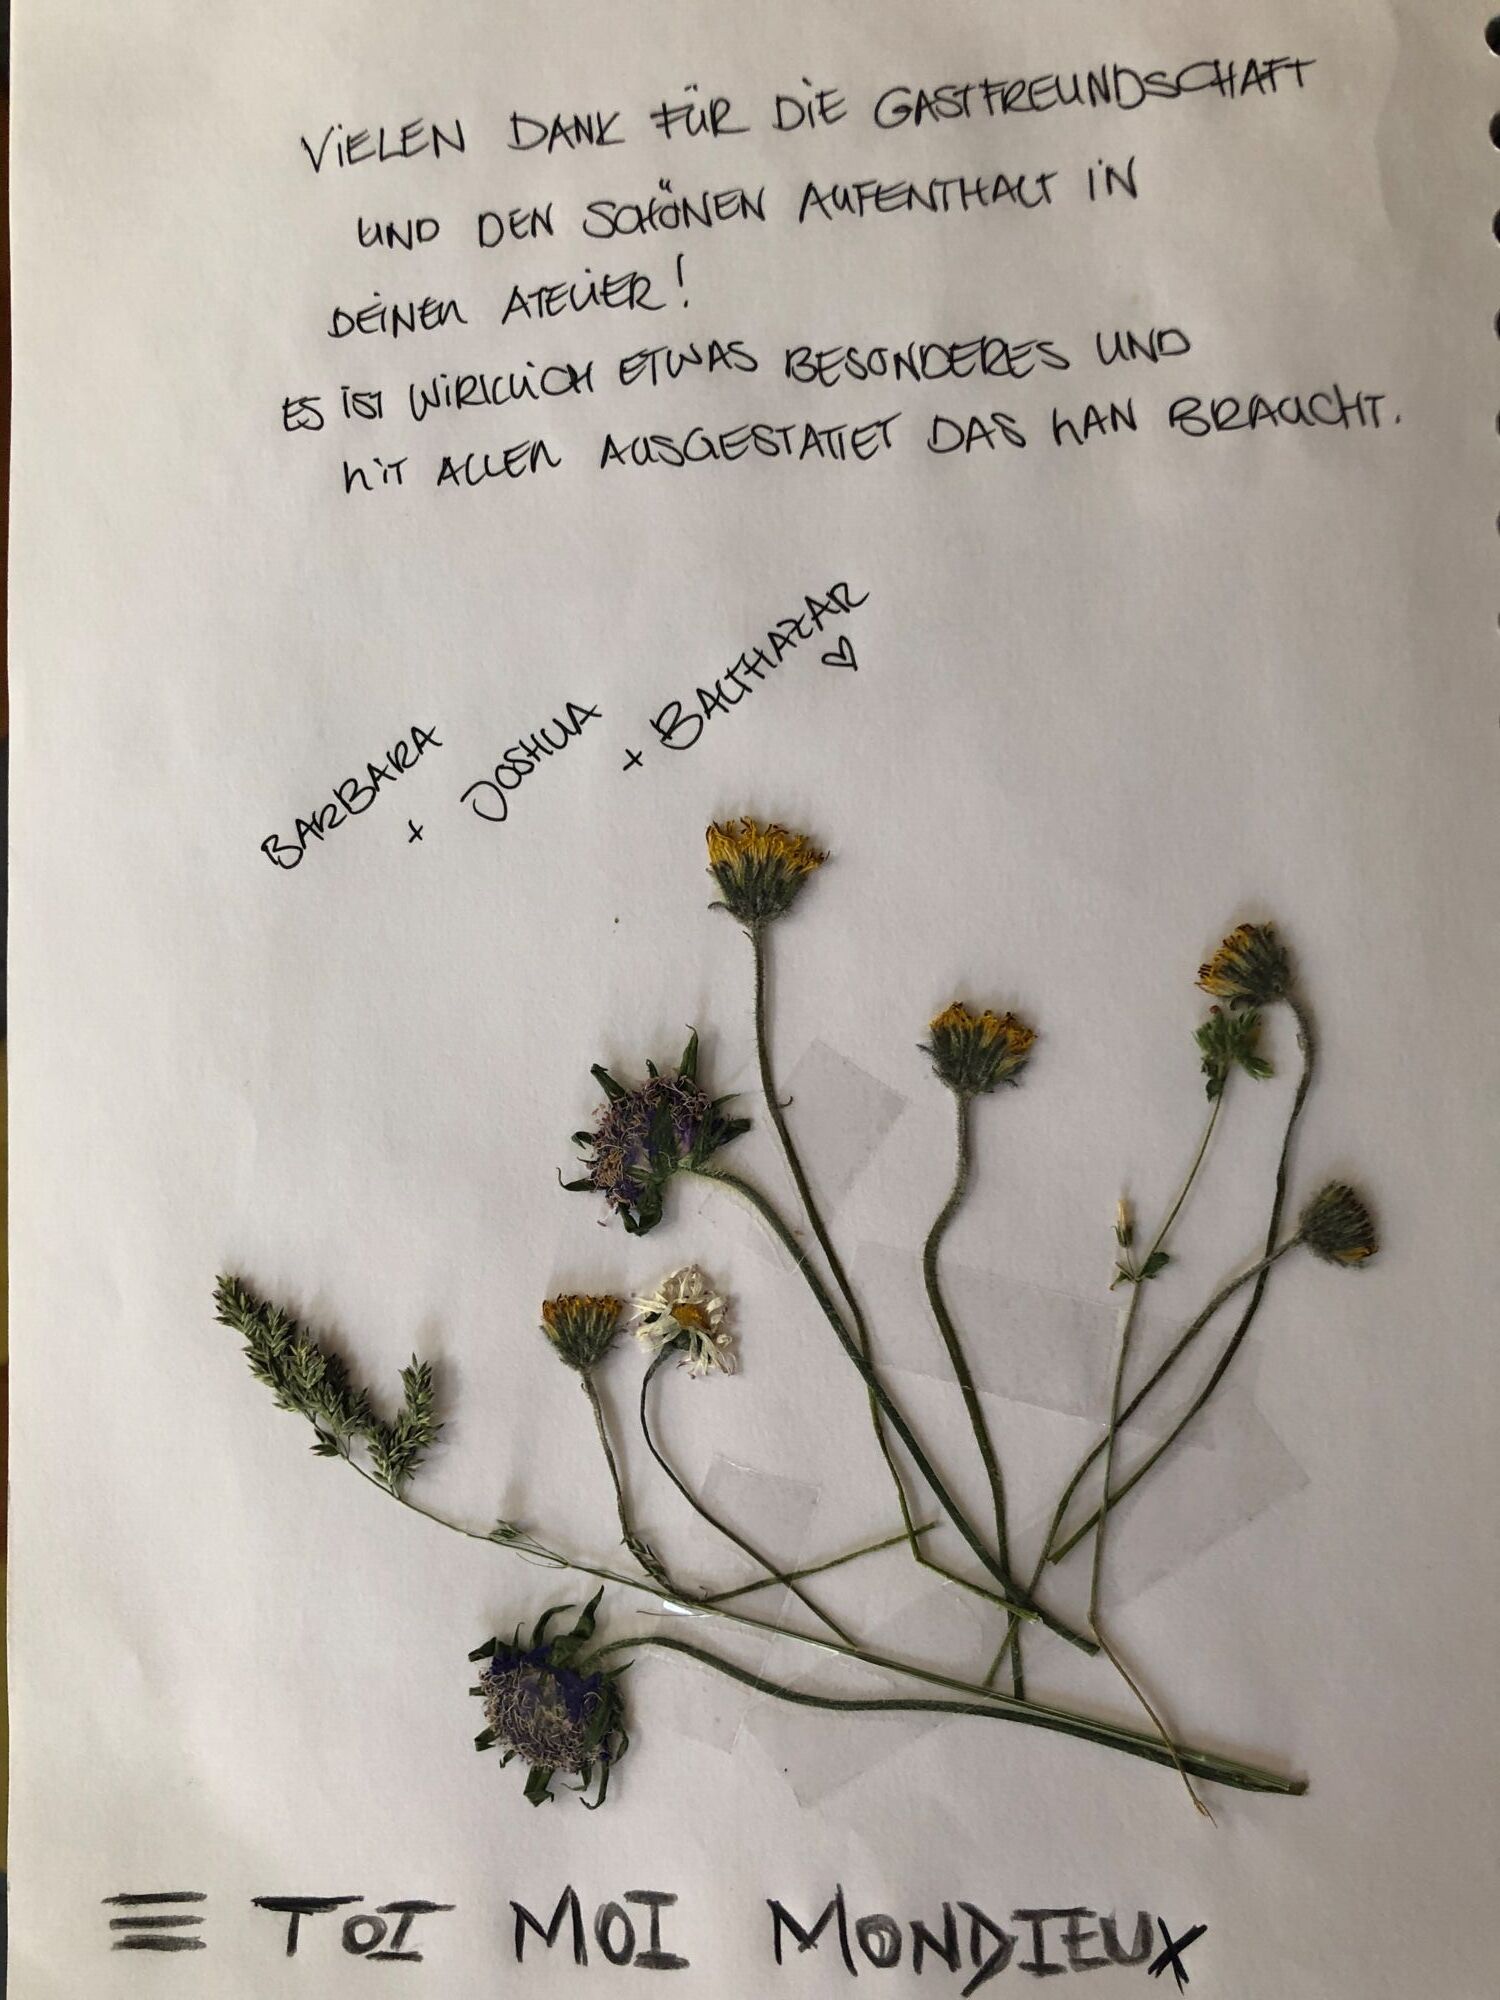 VIELEN DANK FÜR DIE GASTFREUNDSCHAFT
UND DEN SCHÖNEN AUFENTHALT IN
DEINEM ATELIER!
ES IST WIRKLICH ETWAS BESONDERES UND
MIT ALLEM AUSGESTATTET DAS MAN BRAUCHT.
BARBARA + JOSHUA + BALTHAZAR ♡
≡ TOI MOI MONDIEUX